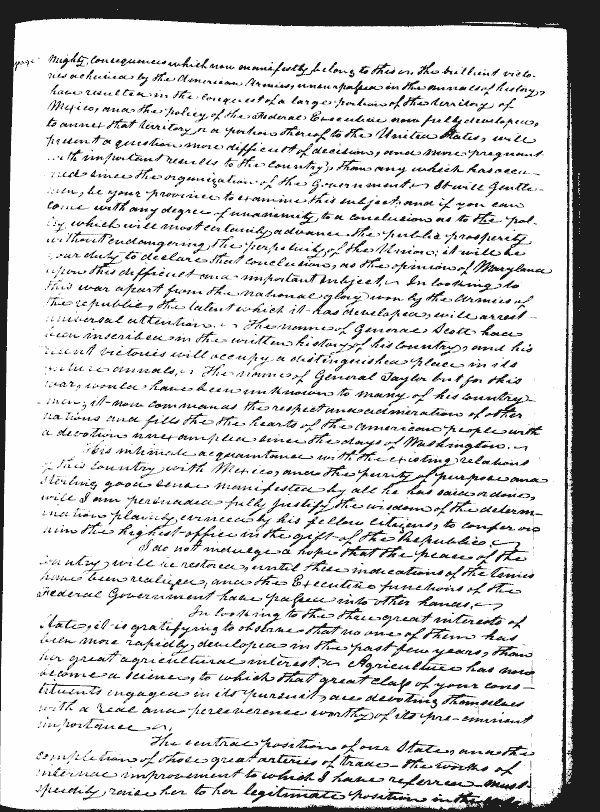 page
mighty consequences which now manifestly belong to this on the brilliant victo-
ries achieved by the American Armies, unsurpassed in the annals of history,
have resulted in the conquest of a large portion of the territory of
Mexico, and the policy of the Federal Executive now fully developed,
to annex that territory or a portion thereof to the United States, will
present a question more difficult of decision, and more pregnant
with important results to the country, than any which has occu-
red since the organization of the Government. It will Gentle-
men, be your province to examine this subject, and if you can
come with any degree of unanimity, to a conclusion as to the pol-
icy which will most certainly advance the public prosperity
without endangering the perpetuity of the Union; it will be
your duty to declare that conclusion, as the opinion of Maryland
upon this difficult and important subject. In looking to
this war apart from the national glory won by the Armies of
the republic, the talent which it has developed, will arrest
universal attention. The name of General Scott had
been inscribed in the written history of his country, and his
recent victories will occupy a distinguished place in its
future annals. The name of General Taylor but for this
war, would have been unknown to many of his country-
men; it now commands the respect and admiration of other
nations and fills the the hearts of the American people with
a devotion unexampled since the days of Washington.
His intimate acquaintance with the existing relations
of this Country with Mexico, and the purity of purpose and
sterling good sense manifested by all he has said or done,
will I am persuaded fully justify the wisdom of the determ-
ination plainly evinced by his fellow citizens, to confer on
him the highest office in the gift of the Republic.
I do not indulge a hope that the peace of the
country, will be restored, until these indications of the times
have been realized, and the Executive functions of the
Federal Government have passed into other hands.
In looking to the three great interests of
State, it is gratifying to observe that no one of them has
been more rapidly developed in the past few years, than
her great agricultural interest. Agriculture has now
become a science, to which that great class of your cons-
tituents engaged in its pursuit, are devoting themselves
with a zeal and perseverence worthy of its pre-eminent
importance.
The central position of our State, and the
completion of those great arteries of trade - the works of
internal improvement to which I have referred must
speedily raise her to her legitimate position in the